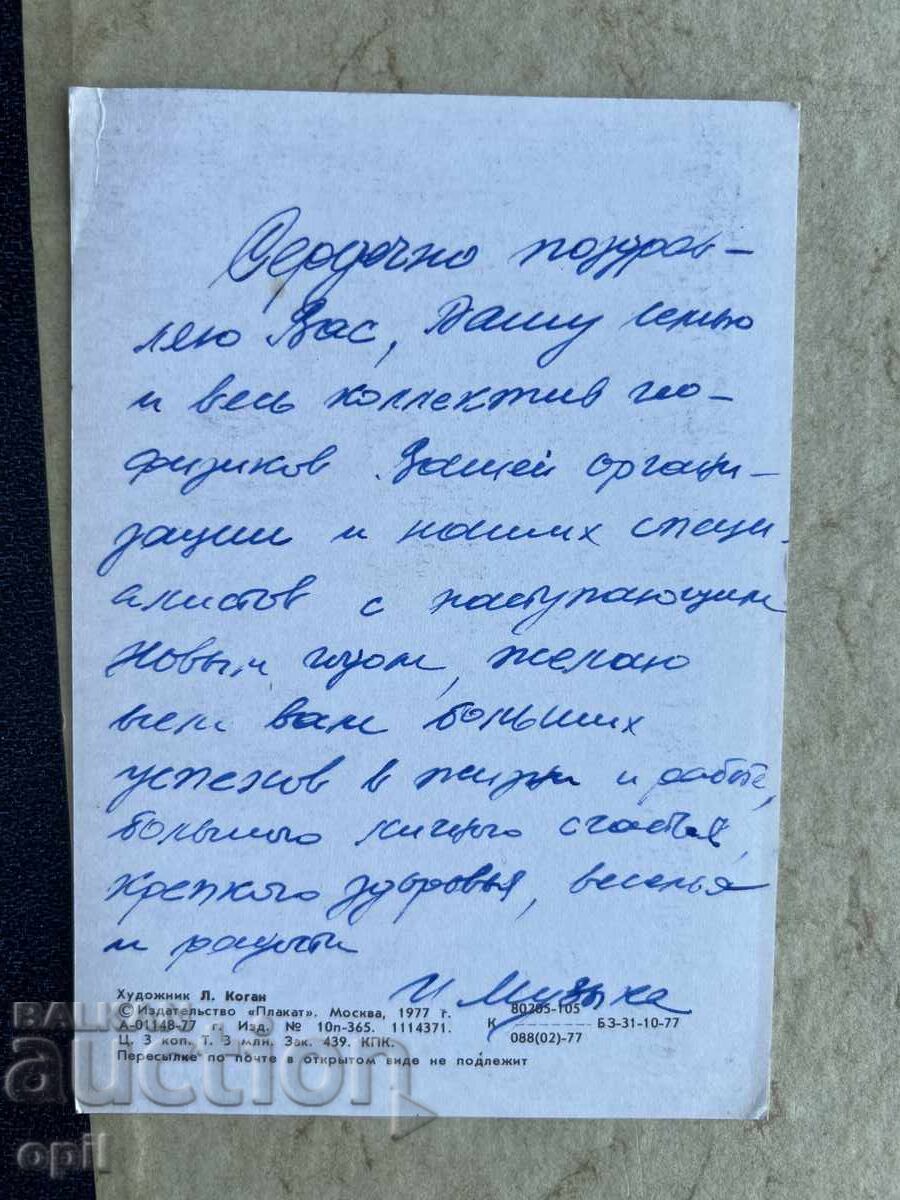 Сердечно поздрав-
ляю Вас, Вашу семью
и весь коллектив гео-
физиков Вашей органи-
зации и наших специ-
алистов с наступающим
Новым годом, желаю
всем вам больших
успехов в жизни и работе,
большого личного счастья,
крепкого здоровья, веселья
и радости
И Музыка
Художник Л. Коган
©Издательство «Плакат». Москва, 1977 г.
А-01148-77 г. Изд. № 10п-365. 1114371.
Ц. 3 коп. Т. 3 млн. Зак. 439. КПК.
Пересылке по почте в открытом виде не подлежит
80205-105
К ———— БЗ-31-10-77
088(02)-77
BALKAN
auction
opil